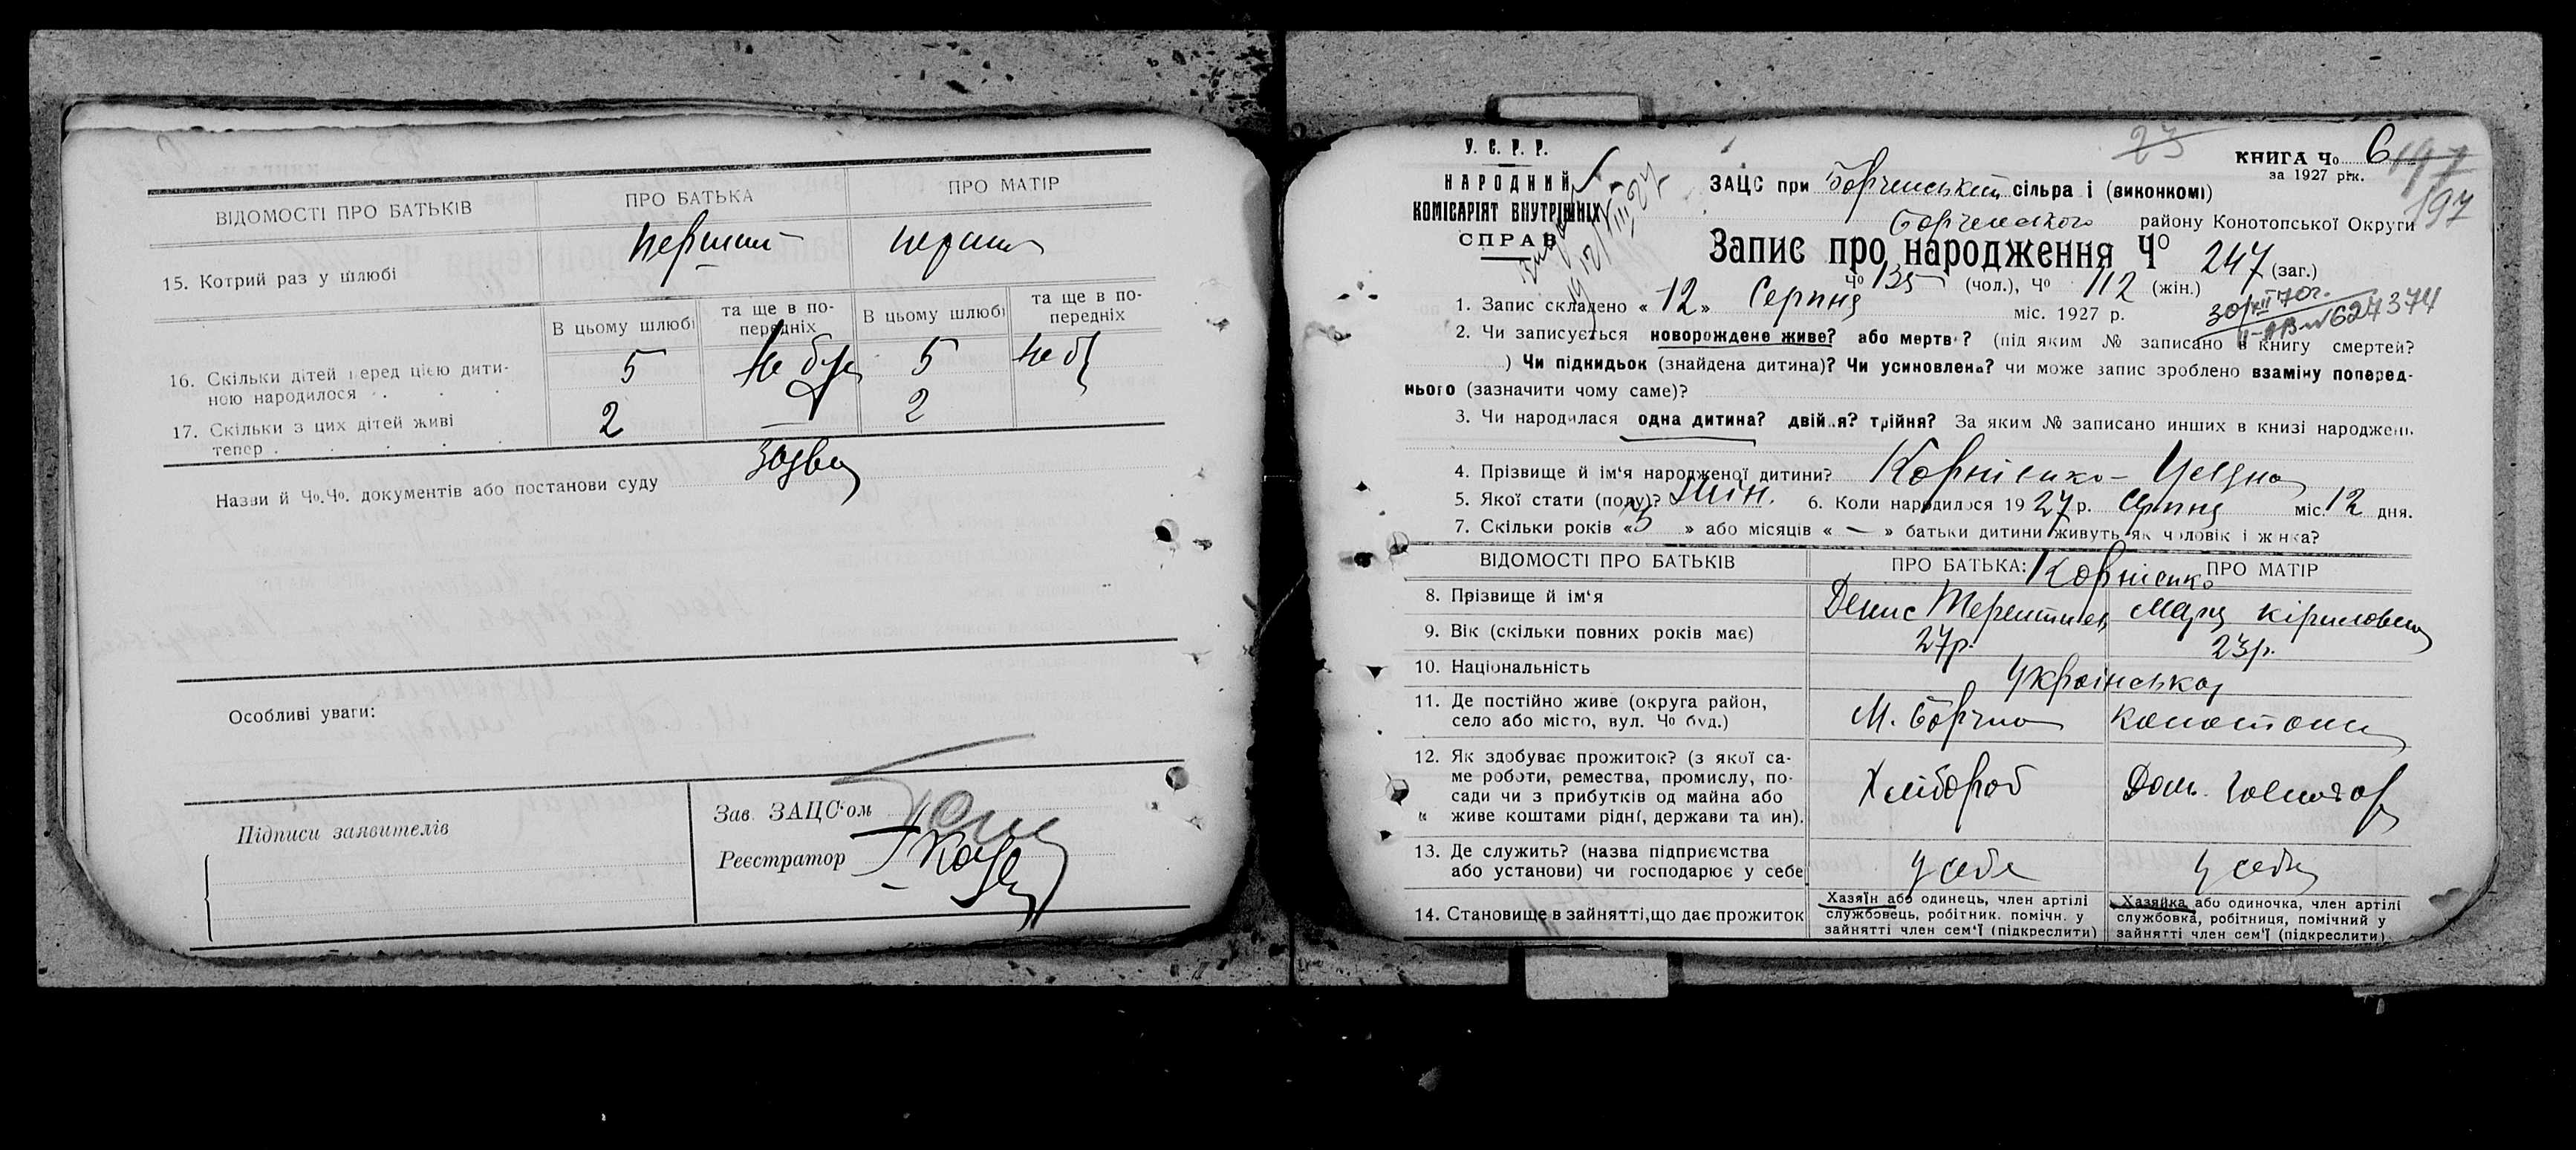 ВІДОМОСТІ ПРО БАТЬКІВ
ПРО БАТЬКА
ПРО МАТІР
15. Котрий раз у шлюбі
перший
перший
В цьому шлюбі
та ще в по-
передніх
В цьому шлюбі
та ще в по-
передніх
16. Скільки дітей перед цією дити-
ною народилося
5
не було
5
не б
17. Скільки з цих дітей живі
тепер
2
—
2
Назви й Чо.Чо. документів або постанови суду
заява
Особливі уваги:
Підписи заявителів
Зав. ЗАЦС'ом
Реєстратор
У. С. Р. Р.
НАРОДНИЙ
КОМІСАРІЯТ ВНУТРІШНІХ
СПРАВ
23
КНИГА Чо 6
за 1927 рік.
197
197
ЗАЦС при Борченський сільра і (виконкомі)
Борченского району Конотопської Округи
Запис про народження Чо 247 (заг.)
Чо 135 (чол.), Чо 112 (жін.)
1. Запис складено « 12 » Серпня міс. 1927 р.
30/XII 70г.
II-ЯВ № 624374
2. Чи записується новорождене живе? або мертве? (під яким № записано в книгу смертей?
) Чи підкидьок (знайдена дитина)? Чи усиновлена? чи може запис зроблено взаміну поперед-
нього (зазначити чому саме)?
3. Чи народилася одна дитина? двійня? трійня? За яким № записано инших в книзі народжень
4. Прізвище й ім'я народженої дитини? Корнієнко –
5. Якої стати (полу)? жін. 6. Коли народилося 1927 р. серпня міс. 12 дня.
7. Скільки років « 5 » або місяців « — » батьки дитини живуть як чоловік і жінка?
ВІДОМОСТІ ПРО БАТЬКІВ
ПРО БАТЬКА:
ПРО МАТІР
Корнієнко
8. Прізвище й ім'я
Денис Терентиев
Марія Кириловна
9. Вік (скільки повних років має)
27р.
23р.
10. Національність
Українська
11. Де постійно живе (округа район,
село або місто, вул. Чо буд.)
М. Борзна
Конотопщ
12. Як здобуває прожиток? (з якої са-
ме роботи, ремества, промислу, по-
сади чи з прибутків од майна або
живе коштами рідні, держави та ин).
Хлібороб
Дом. господар
13. Де служить? (назва підприємства
або установи) чи господарює у себе
у себе
у себе
14. Становище в зайнятті,що дає прожиток
Хазяїн або одинець, член артілі
службовець, робітник. помічн. у
зайнятті член сем'ї (підкреслити)
Хазяйка або одиночка, член артілі
службовка, робітниця, помічний у
зайнятті член сем'ї (підкреслити)